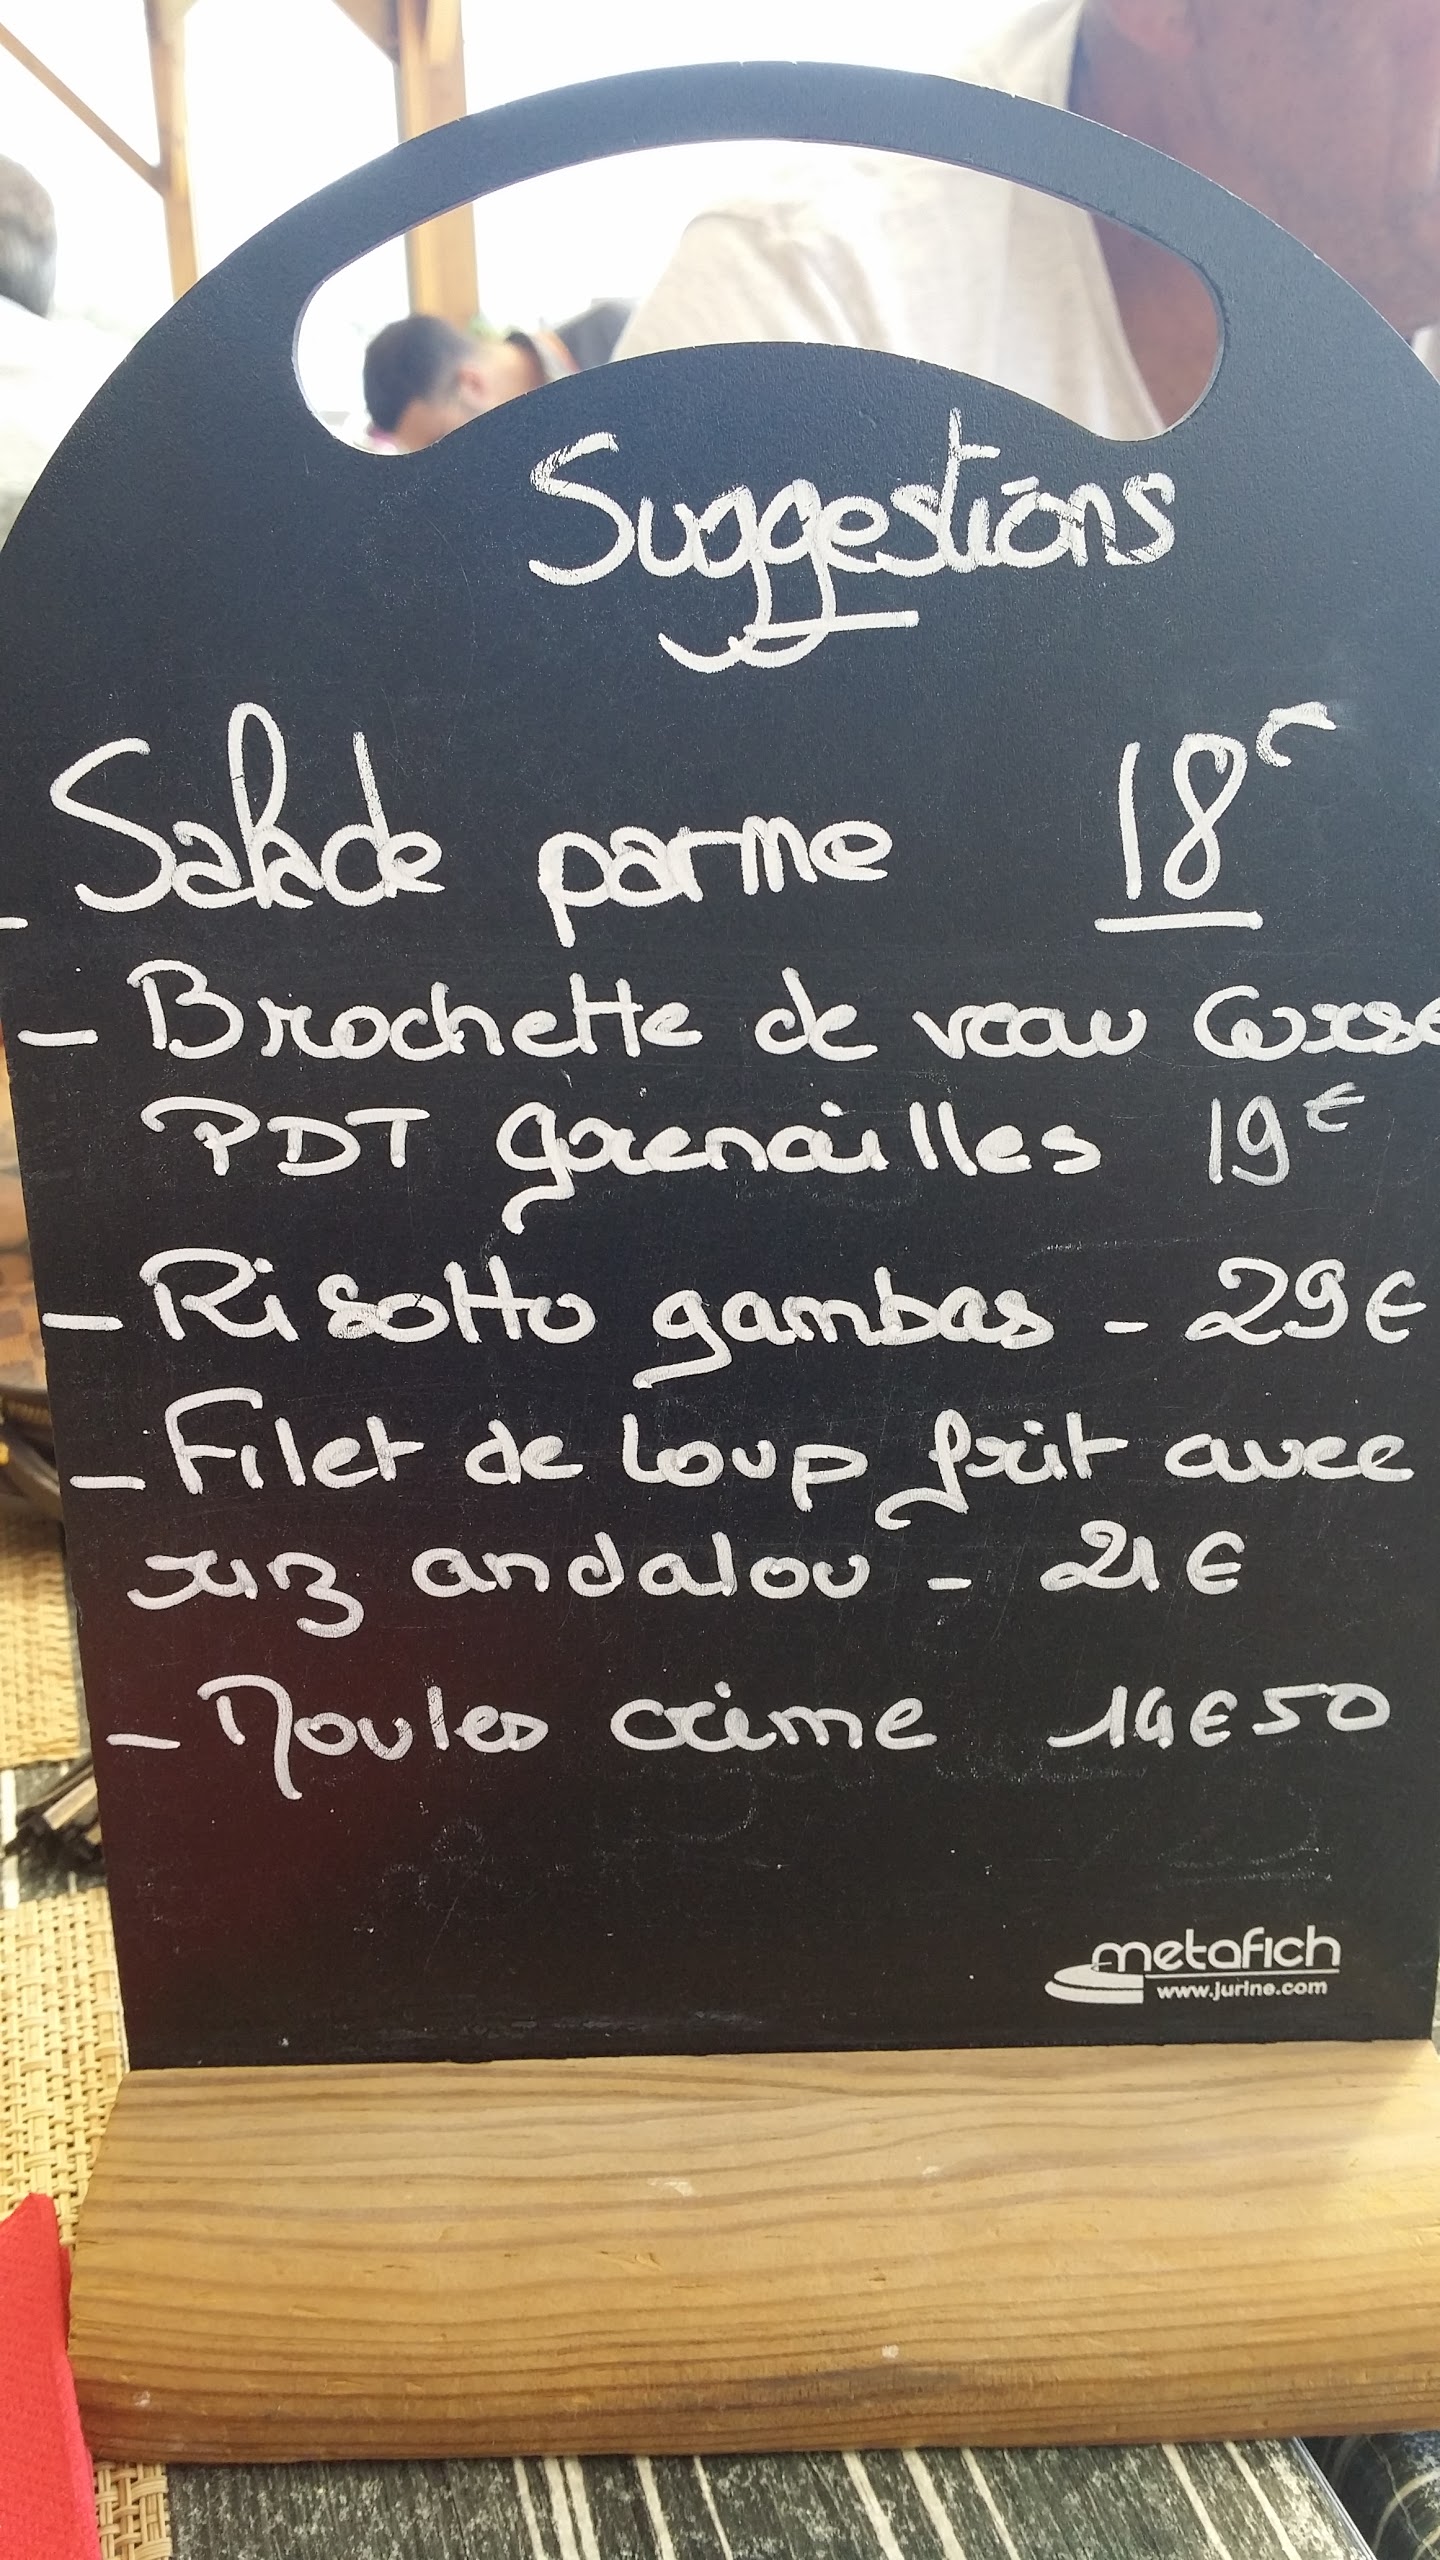 Suggestions
- Salade parme 18€
- Brochette de veau Corse
PDT grenailles 19€
- Risotto gambas - 29€
- Filet de loup frit avec
riz andalou - 21€
- Moules crème 14€50
metafich
www.jurine.com